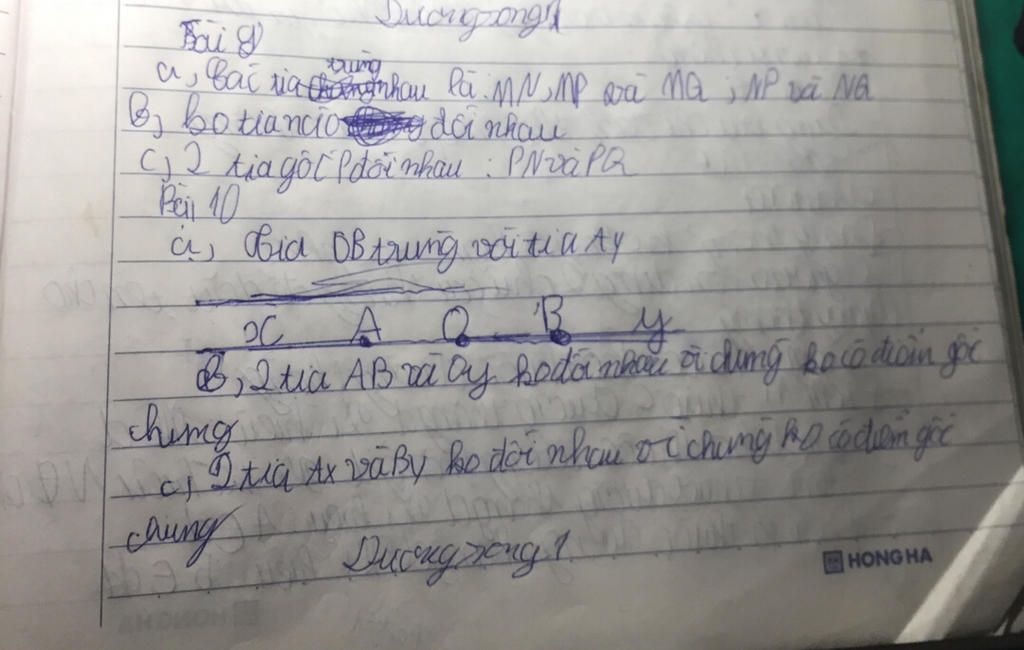 Duongzong1
Bài 9
trùng
a, Các tia nhau là: MN, MP và MQ ; NP và NQ
B, ko tia nào đối nhau
c, 2 tia gốc P đối nhau : PN và PQ
Bài 10
a, tia OB trùng với tia Ay
x A O B y
B, 2 tia AB và Oy ko đối nhau vì chúng ko có điểm gốc
chung
c, 2 tia Ax và By ko đối nhau vì chúng ko có điểm gốc
chung
Duongzong1
HONG HA